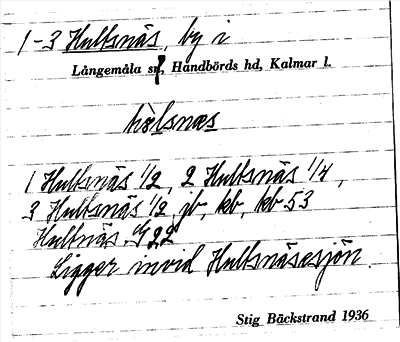 1-3 Hultsnäs, by i
Långemåla sn, Handbörds hd, Kalmar l.
hòlsnæs
1 Hultsnäs 1/2, 2 Hultsnäs 1/4,
3 Hultsnäs 1/2 jb, kb, kb 53
Hultnäs G 22
Ligger invid Hultsnäsesjön.
Stig Bäckstrand 1936